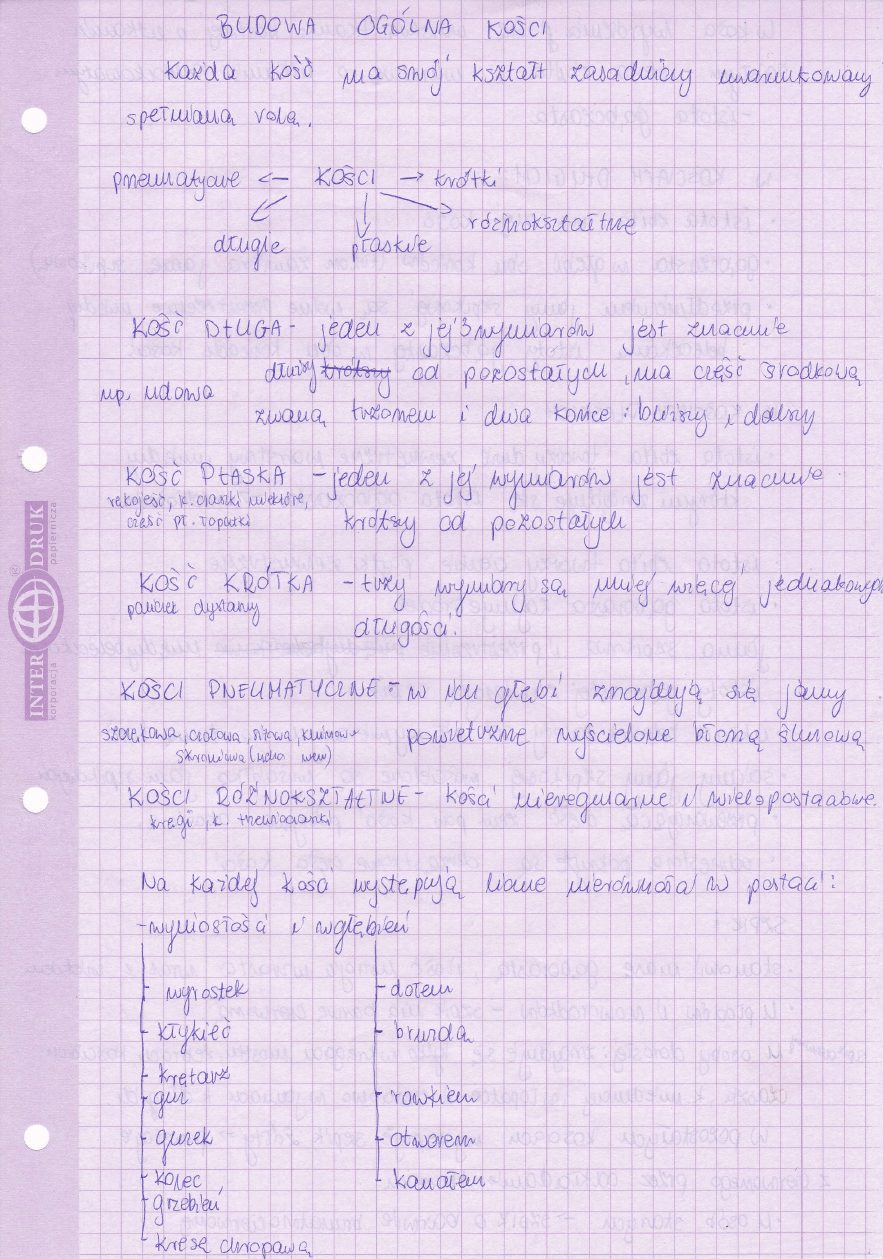 BUDOWA OGÓLNA KOŚCI
Każda kość ma swój kształt zasadniczy uwarunkowany
spełnianą rolą.
pneumatyczne ← KOŚCI → krótki
różnokształtne
długie płaskie
KOŚĆ DŁUGA - jeden z jej 3 wymiarów jest znacznie
dłuższy krótszy od pozostałych, ma część środkową
np. udowa
zwaną trzonem i dwa końce: bliższy i dalszy
KOŚĆ PŁASKA - jeden z jej wymiarów jest znacznie
rękojeść, k. czaszki niektóre,
część pł. łopatki
krótszy od pozostałych
KOŚĆ KRÓTKA - trzy wymiary są mniej więcej jednakowej
długości.
KOŚCI PNEUMATYCZNE - w ich głębi znajdują się jamy
szczękowa, czołowa, sitowa, klinowa
skroniowa (ucha wew)
powietrzne wyścielone błoną śluzową
KOŚCI RÓŻNOKSZTAŁTNE - kości nieregularne i wielopostaciowe.
kręgi, k. trzewioczaszki
Na każdej kości występują liczne nierówności w postaci:
- wyniosłości i wgłębień
- wyrostek
- dołem
- kłykieć
- bruzdą
- krętarz
- guz
- rowkiem
- guzek
- otworem
- kolec
- kanałem
- grzebień
- kresę chropawą
INTER DRUK
korporacja papiernicza